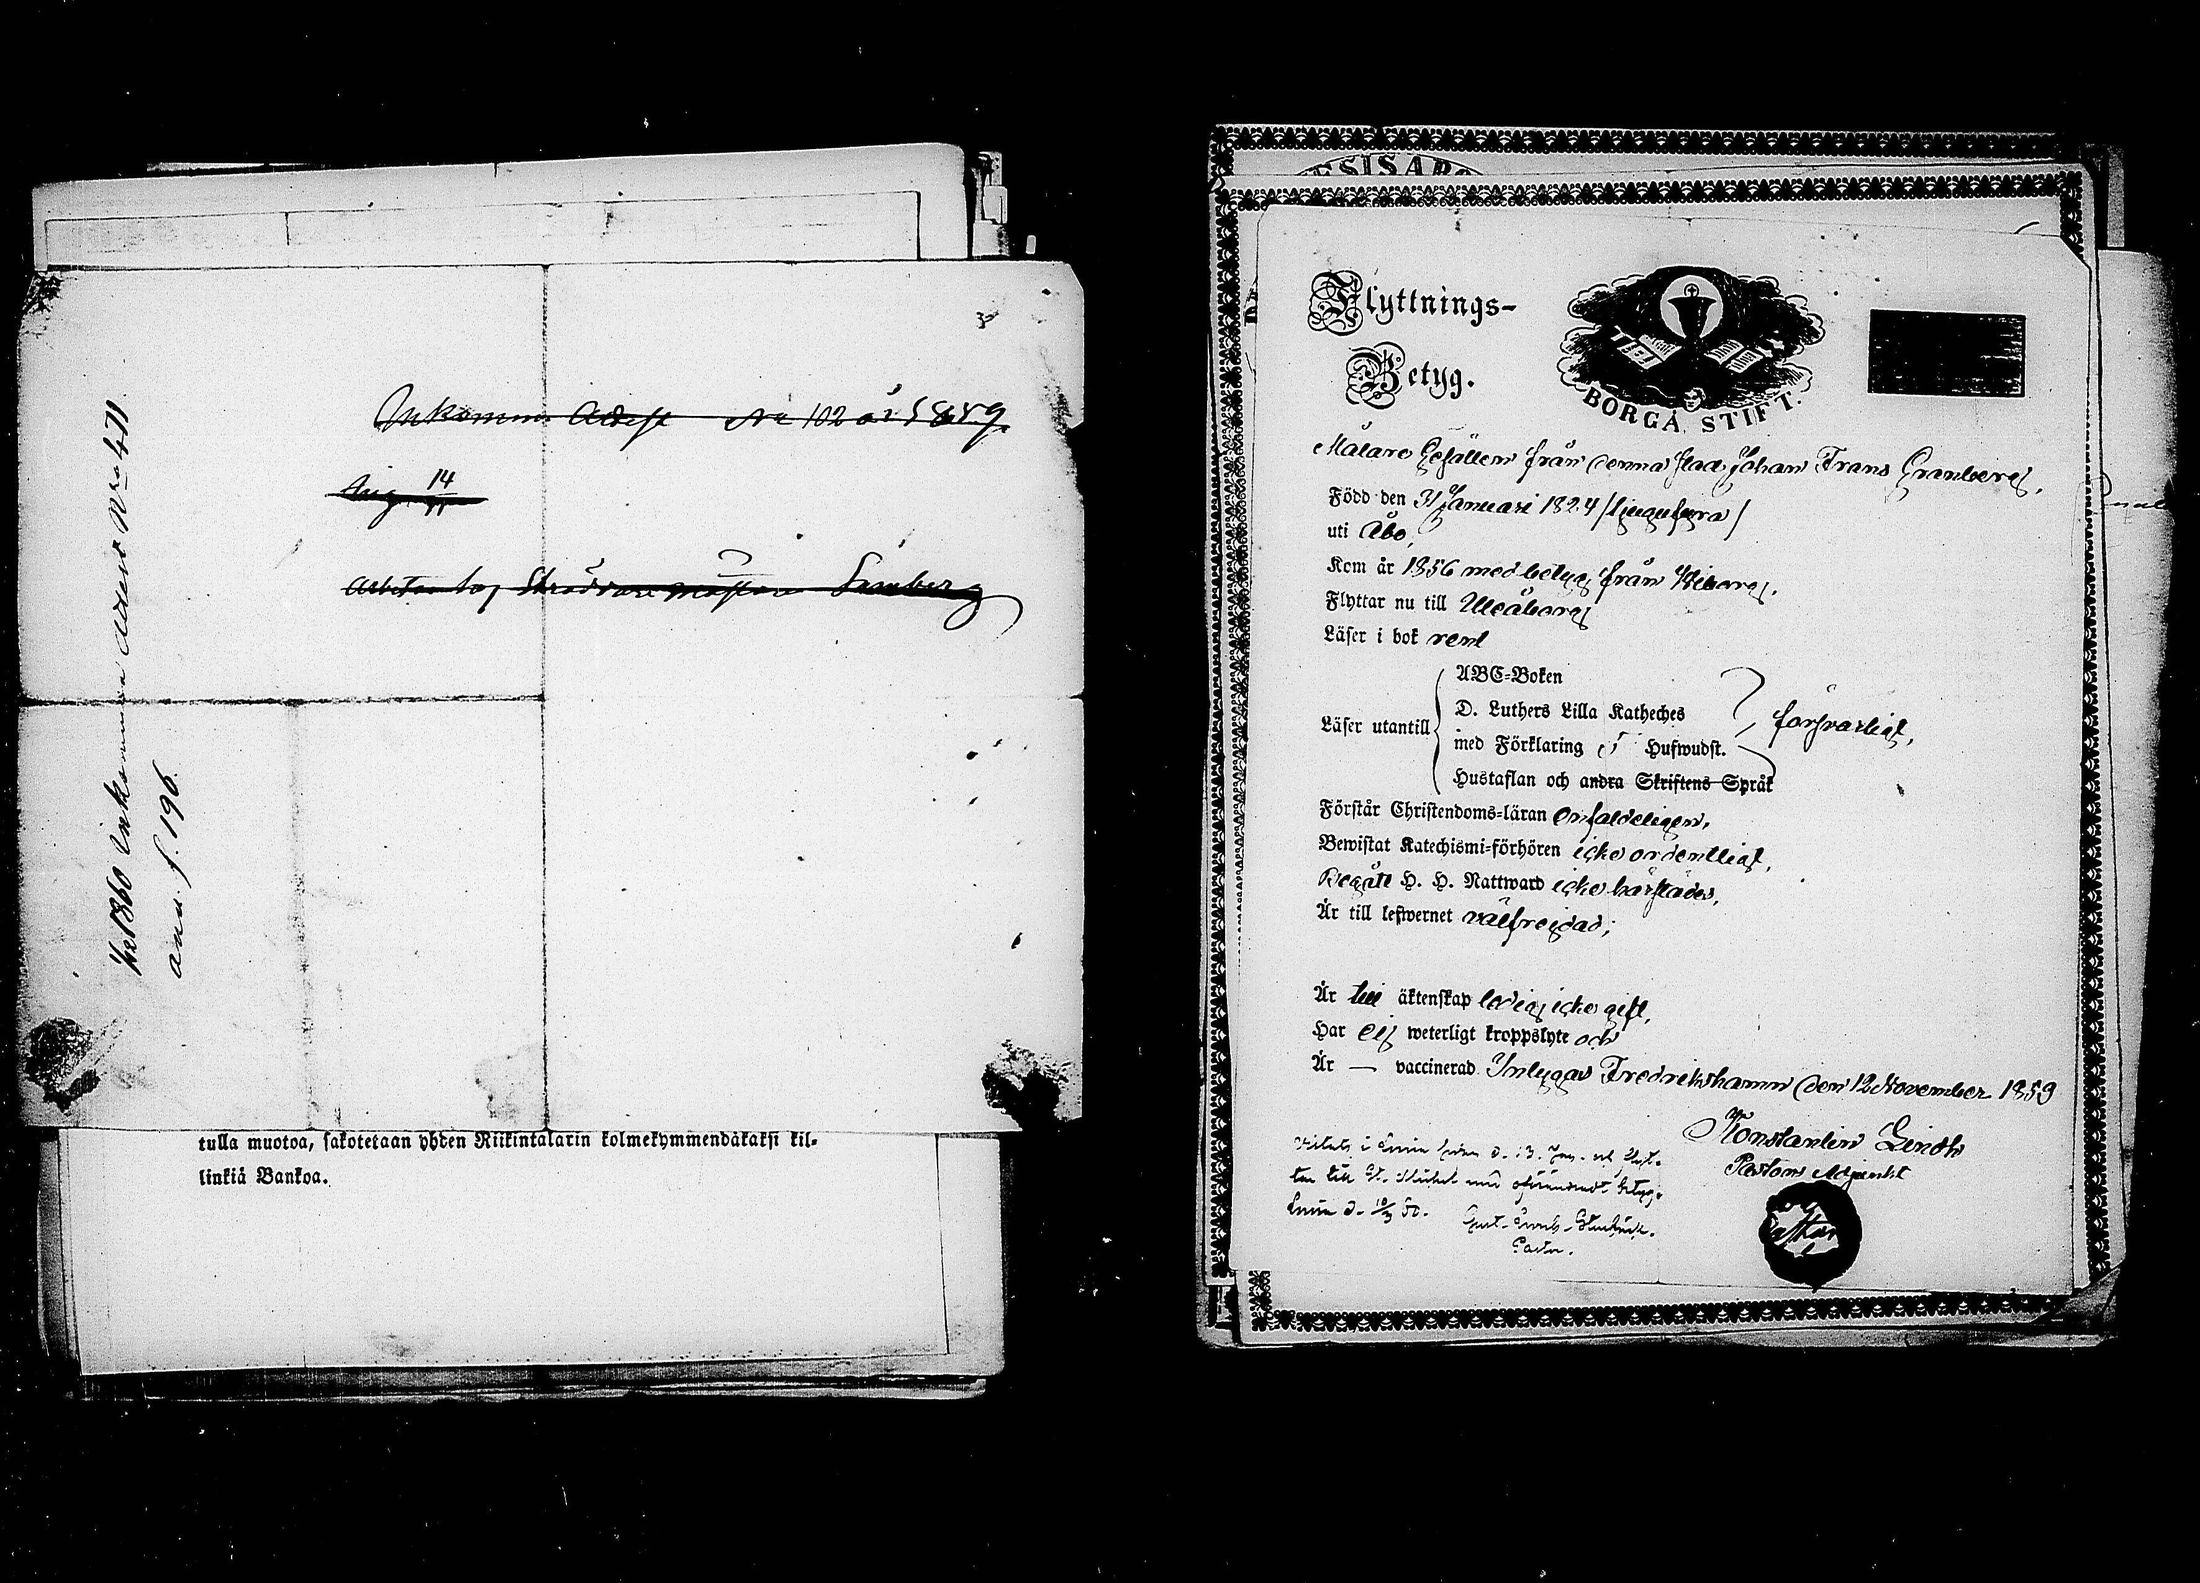 Inkomm. Adess No 102 år 1859
14
arbetar
Skräddare mästare
1860 Inkomma Adess Nro 471
ann. f. 196.
tulla muotoa, sakotetaan yhden Riikintalarin kolmekymmendäkaksi kil-
linkiä Bankoa.
ESISAR
Flyttnings-
Betyg.
BORGÅ STIFT.
Målare Gesällen från denna stad Johan Frans Granberg,
Född den 31 Januari 1824 /tjugufyra/
uti Åbo,
Kom år 1856 med betyg från Wiborg,
Flyttar nu till Uleåborg
Läser i bok rent
ABC-Boken
D. Luthers Lilla Katheches
Läser utantill
med Förklaring 5 Hufwudst.
försvarligt,
Hustaflan och andra Skriftens Språk
Förstår Christendoms-läran enfaldeligen,
Bewistat Katechismi-förhören icke ordentligt,
Begått H. H. Nattward icke härstädes,
Är till lefwernet välfrejdad;
Är till äktenskap ledig icke gift,
Har ej weterligt kroppslyte och
Är — vaccinerad Intygas Fredrikshamn den 12 November 1859
Konstantin Lindh
Pastors Adjunkt